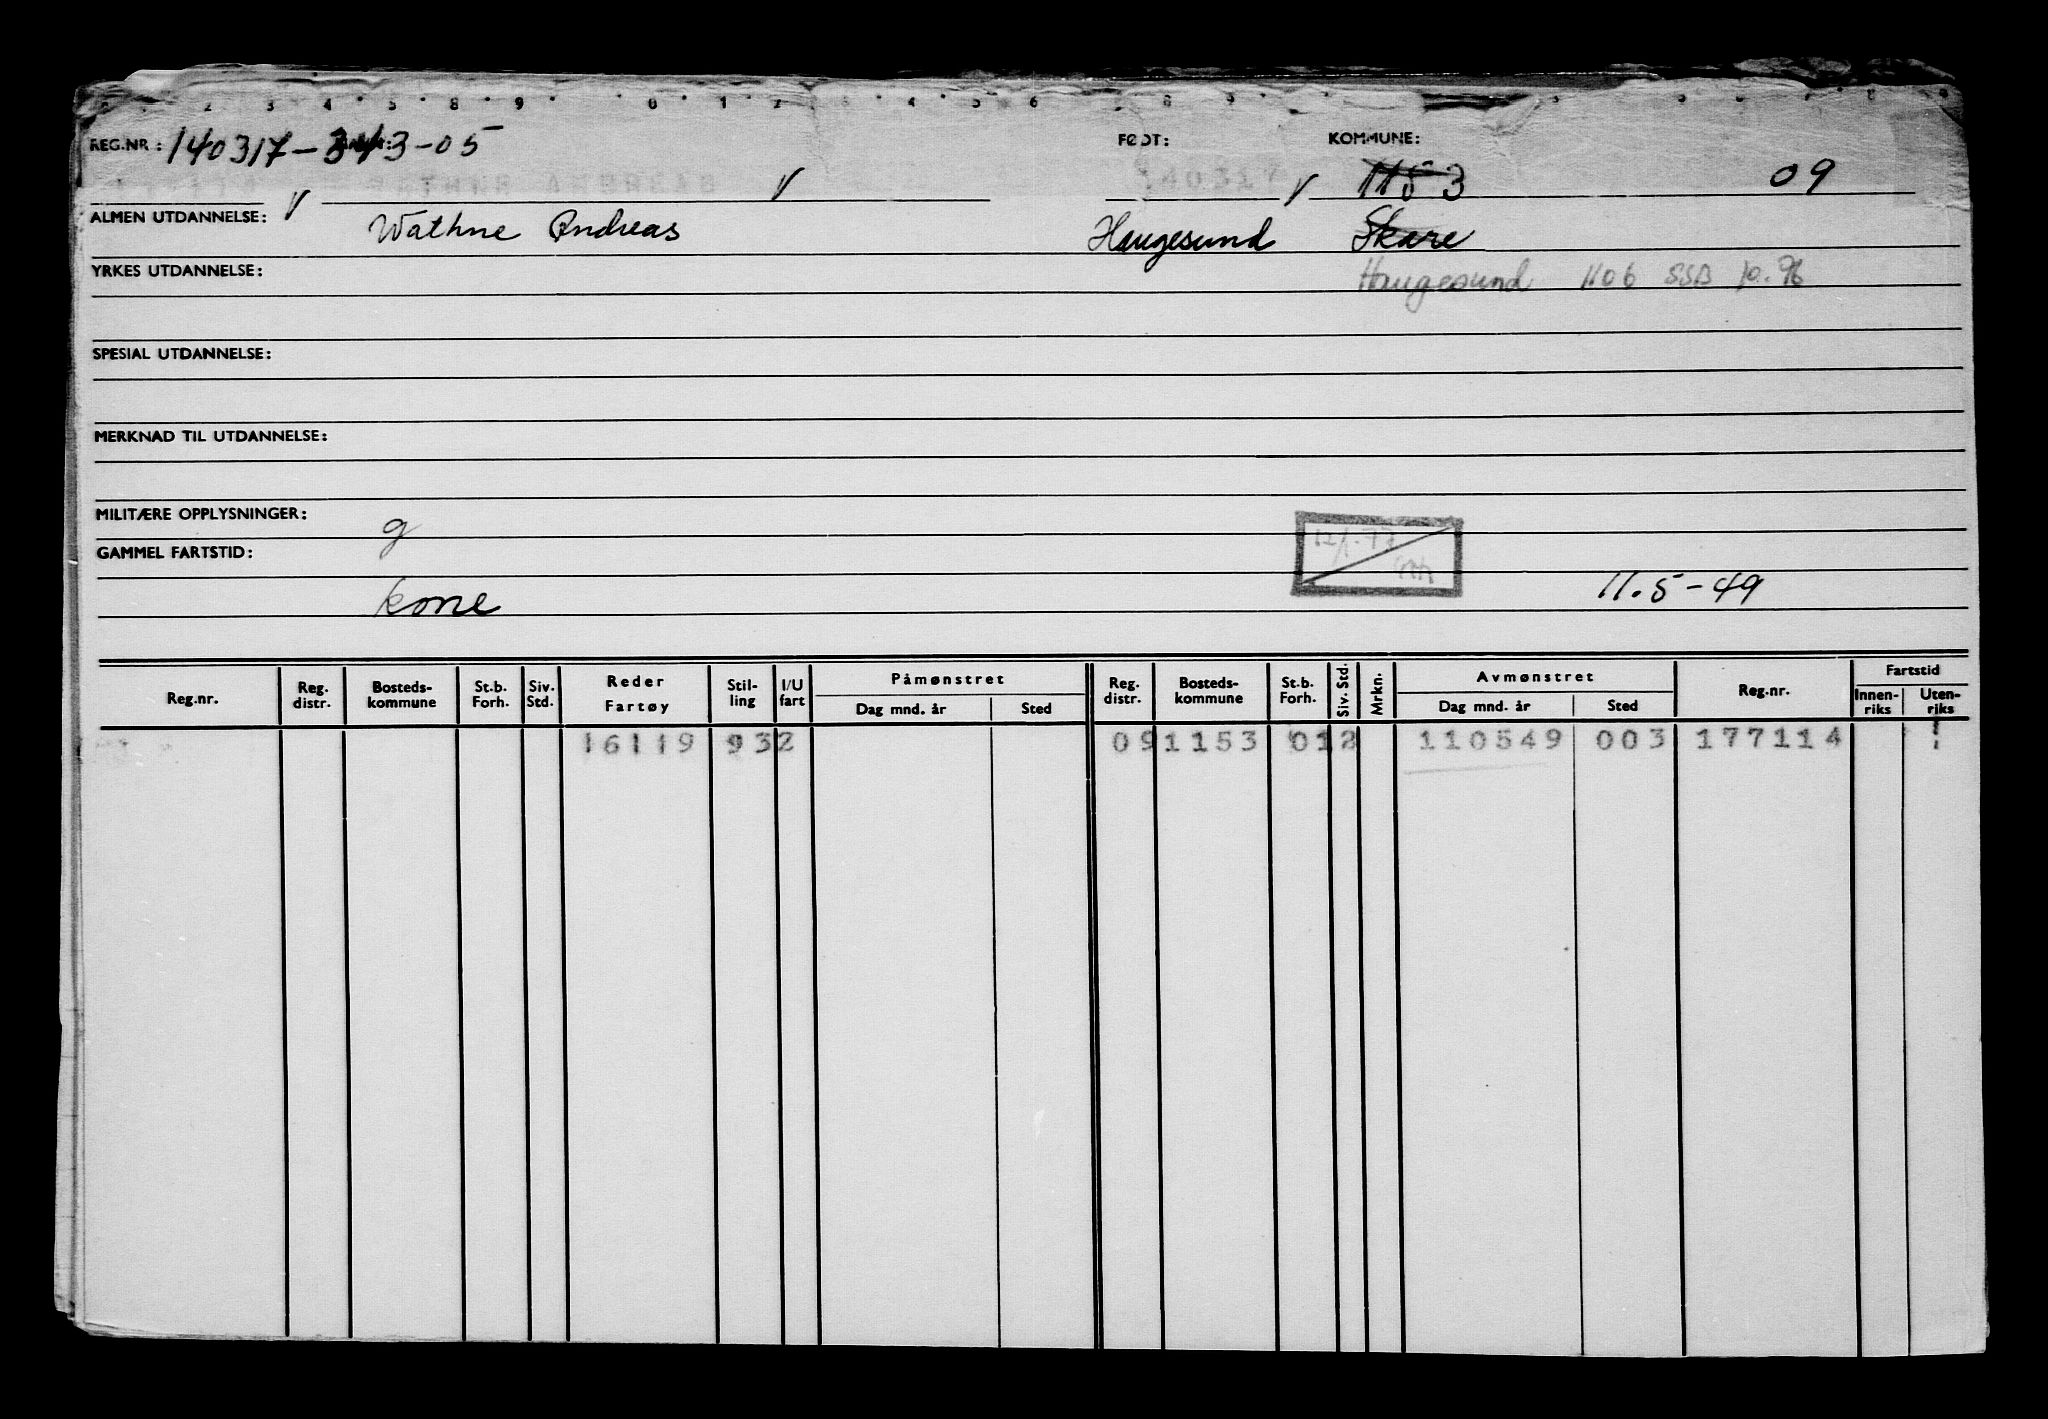 REG.NR.: 140317-343-05 FØDT: KOMMUNE:
V WATHNE ANDREAS V 140317 V 1153 09
ALMEN UTDANNELSE: Wathne Andreas Haugesund Skare
YRKES UTDANNELSE: Haugesund 1106 SSB
SPESIAL UTDANNELSE:
MERKNAD TIL UTDANNELSE:
MILITÆRE OPPLYSNINGER: g
GAMMEL FARTSTID:
kone 11.5-49
Reg.nr. Reg. distr. Bosteds-kommune St.b. Forh. Siv. Std. Reder Fartøy Stil-ling I/U fart Påmønstret Dag mnd. år Sted Reg. distr. Bosteds-kommune St.b. Forh. Siv. Std. Mrkn. Avmønstret Dag mnd. år Sted Reg.nr. Fartstid Innen-riks Uten-riks
16119 932 09 1153 012 110549 003 177114